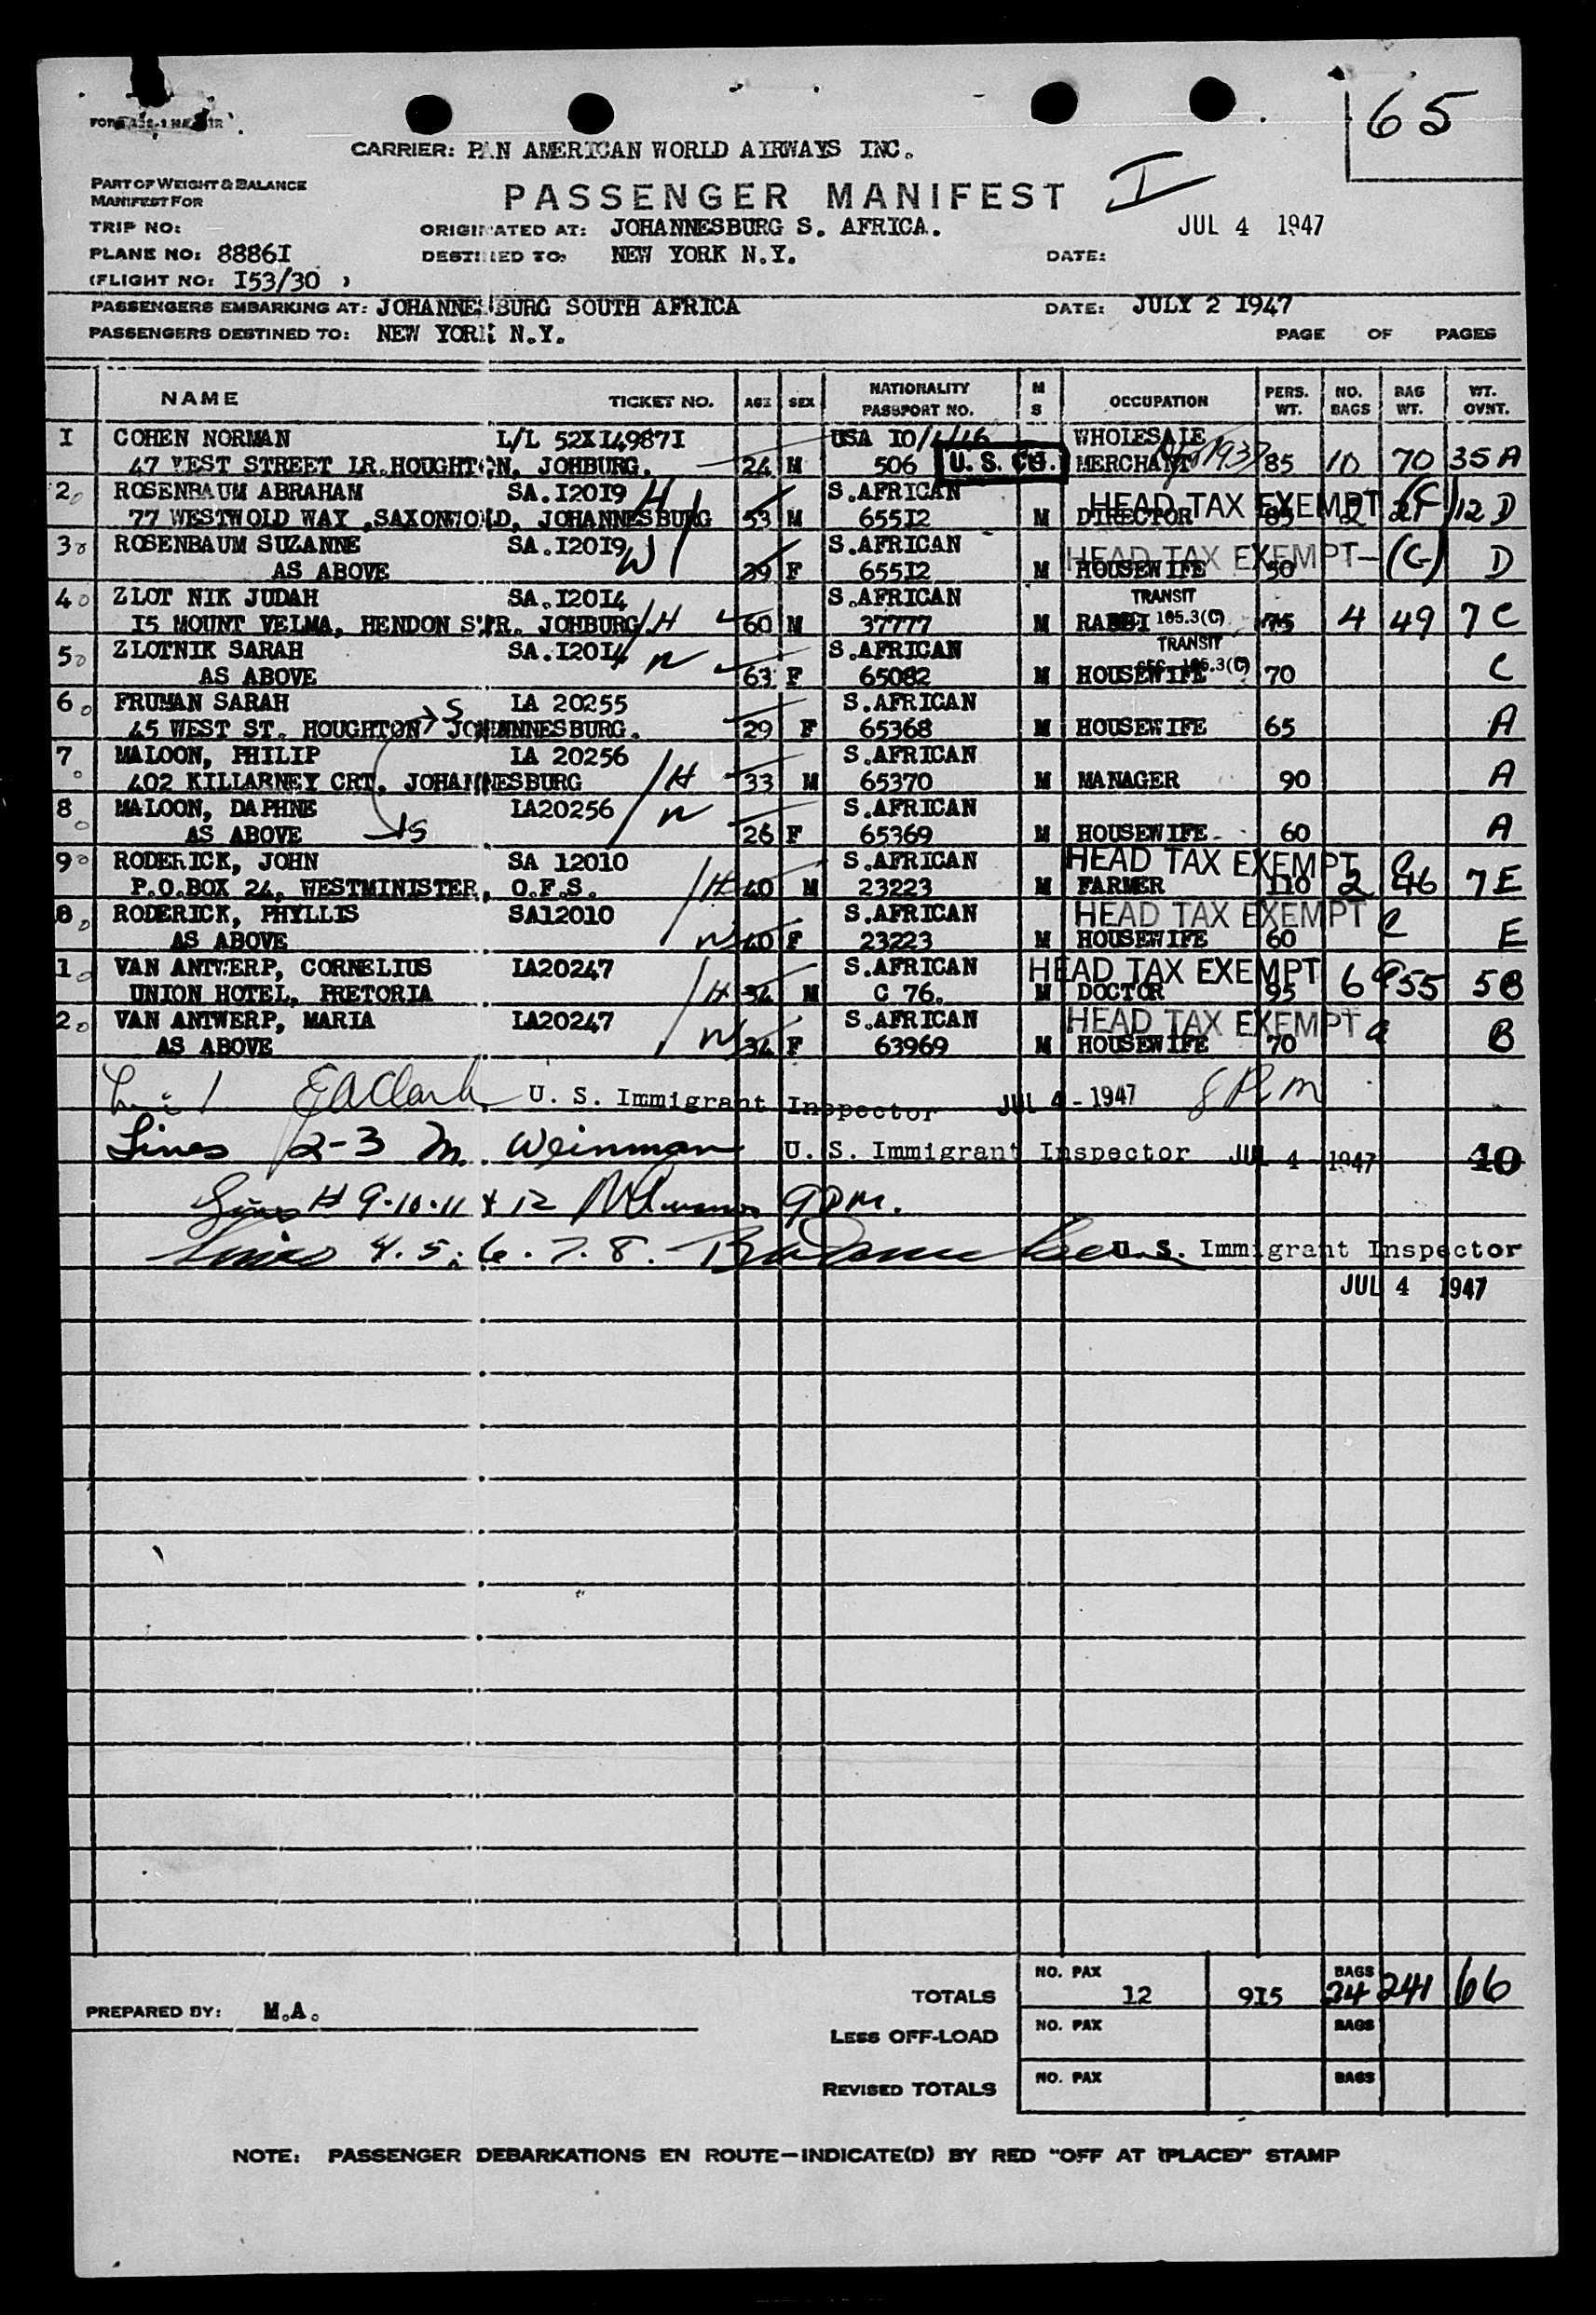 65
CARRIER: PAN AMERICAN WORLD AIRWAYS INC.
PART OF WEIGHT & BALANCE
MANIFEST FOR
PASSENGER MANIFEST I
TRIP NO: ORIGINATED AT: JOHANNESBURG S. AFRICA. JUL 4 1947
PLANE NO: 8886I DESTINED TO: NEW YORK N.Y. DATE:
(FLIGHT NO: I53/30 )
PASSENGERS EMBARKING AT: JOHANNESBURG SOUTH AFRICA DATE: JULY 2 I947
PASSENGERS DESTINED TO: NEW YORK N.Y. PAGE OF PAGES
NAME TICKET NO. AGE SEX NATIONALITY PASSPORT NO. M S OCCUPATION PERS. WT. NO. BAGS BAG WT. WT. OVNT.
I COHEN NORMAN L/L 52XI4987I USA WHOLESALE
47 WEST STREET LR.HOUGHTON, JOHBURG. 24 M 506 U. S. MERCHANT 85 10 70 35 A
2 ROSENBAUM ABRAHAM SA.I20I9 H S.AFRICAN HEAD TAX EXEMPT (C)
77 WESTWOLD WAY ,SAXONWOLD, JOHANNESBURG 53 M 655I2 M DIRECTOR 85 2 12 D
3 ROSENBAUM SUZANNE SA.I20I9 W S.AFRICAN HEAD TAX EXEMPT- (C)
AS ABOVE 39 F 655I2 M HOUSEWIFE 50 D
4 ZLOT NIK JUDAH SA.I20I4 S.AFRICAN TRANSIT
I5 MOUNT VELMA, HENDON STR. JOHBURG H 60 M 37777 M RABBI 105.3(C) 75 4 49 7 C
5 ZLOTNIK SARAH SA.I20I4 W S.AFRICAN TRANSIT
AS ABOVE 63 F 65082 M HOUSEWIFE 105.3(C) 70 C
6 FRUMAN SARAH IA 20255 S.AFRICAN
45 WEST ST. HOUGHTON S JOHANNESBURG. 29 F 65368 M HOUSEWIFE 65 A
7 MALOON, PHILIP IA 20256 S.AFRICAN
402 KILLARNEY CRT, JOHANNESBURG H 33 M 65370 M MANAGER 90 A
8 MALOON, DAPHNE IA20256 W S.AFRICAN
AS ABOVE S 26 F 65369 M HOUSEWIFE 60 A
9 RODERICK, JOHN SA 12010 S.AFRICAN HEAD TAX EXEMPT C
P.O.BOX 24, WESTMINISTER, O.F.S. H 40 M 23223 M FARMER 110 2 46 7 E
RODERICK, PHYLLIS SA12010 S.AFRICAN HEAD TAX EXEMPT C
AS ABOVE W 40 F 23223 M HOUSEWIFE 60 E
1 VAN ANTWERP, CORNELIUS IA20247 S.AFRICAN HEAD TAX EXEMPT
UNION HOTEL, PRETORIA H 34 M C 76. M DOCTOR 95 6 55 5 B
2 VAN ANTWERP, MARIA IA20247 S.AFRICAN HEAD TAX EXEMPT
AS ABOVE W 34 F 63969 M HOUSEWIFE 70 B
EA Clark U. S. Immigrant Inspector JUL 4 - 1947 8 P.m
Lines 2-3 M. Weinman U. S. Immigrant Inspector JUL 4 1947 10
Lines # 9-10-11 & 12 9 PM.
Lines 4. 5. 6. 7. 8. U.S. Immigrant Inspector
JUL 4 1947
PREPARED BY: M.A.
TOTALS NO. PAX 12 9I5 BAGS 24 241 66
LESS OFF-LOAD NO. PAX BAGS
REVISED TOTALS NO. PAX BAGS
NOTE: PASSENGER DEBARKATIONS EN ROUTE—INDICATE(D) BY RED "OFF AT (PLACE)" STAMP